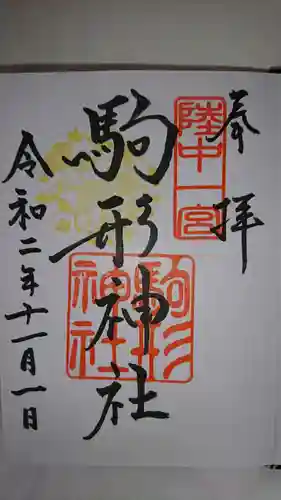 奉拝
陸中一宮
駒形神社
駒形神社
令和二年十一月一日